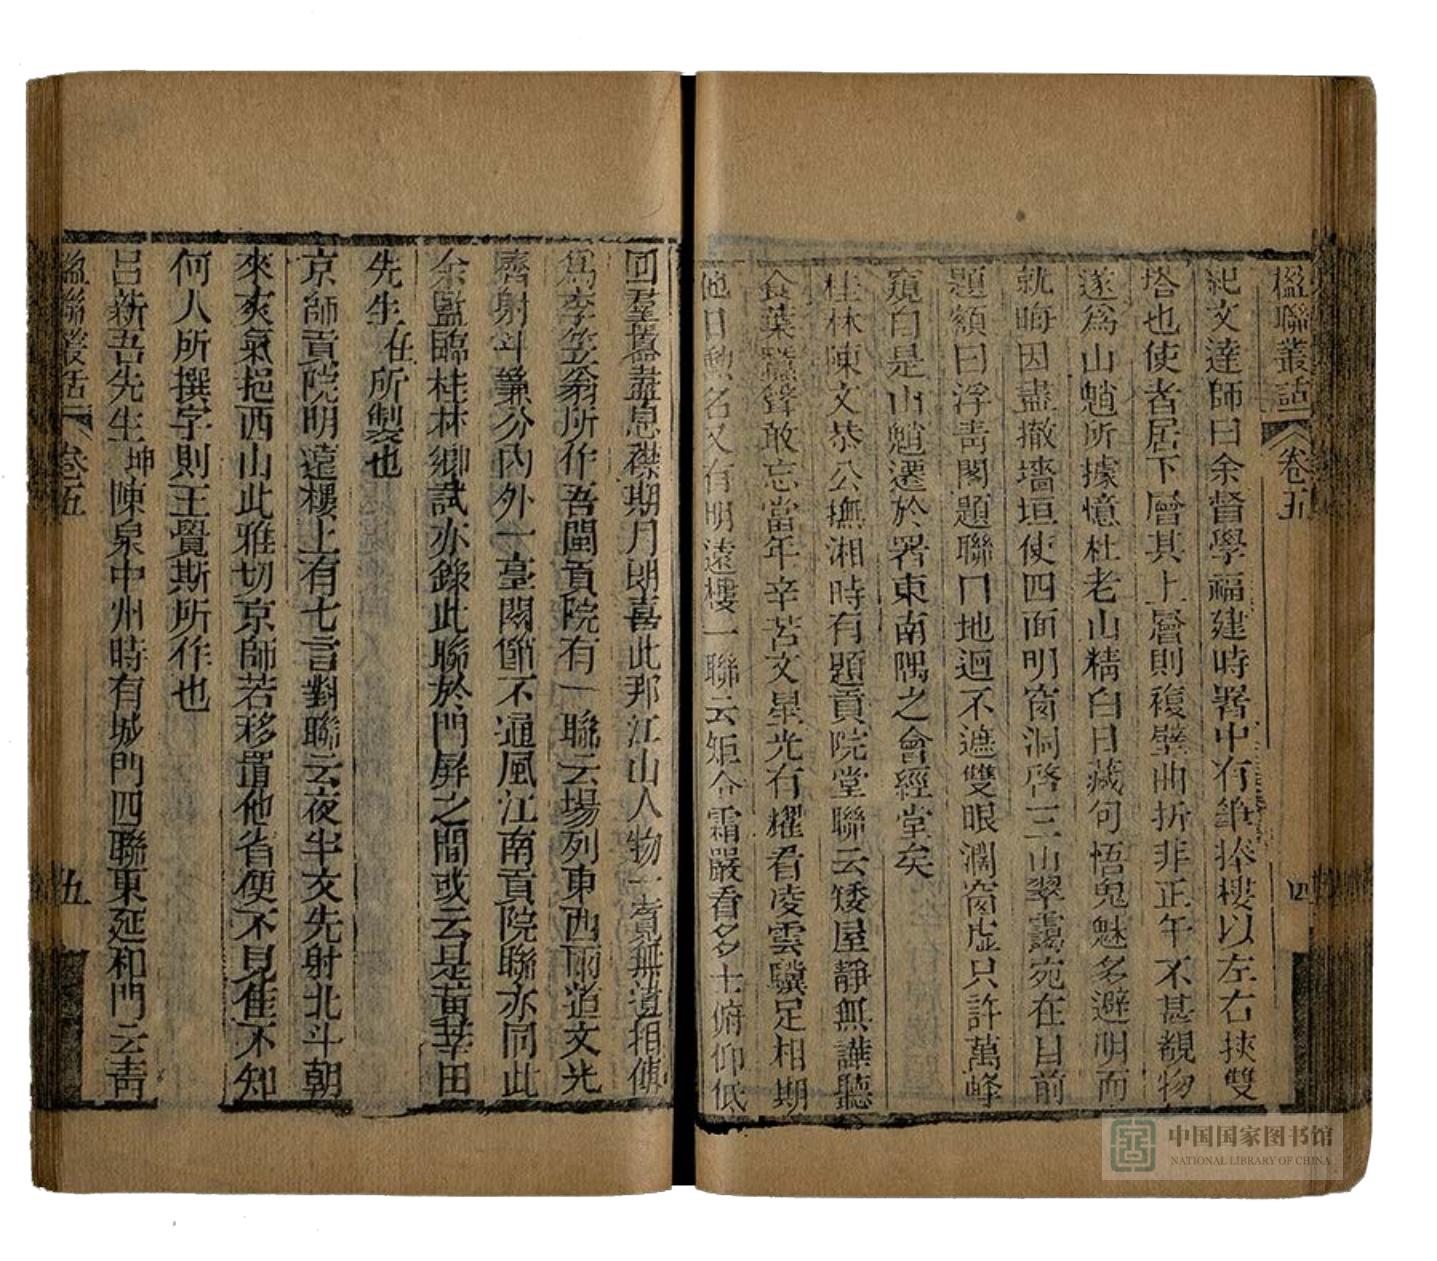 楹聯叢話 卷五 四
紀文達師曰余督學福建時署中有筆捧樓以左右挾雙
塔也使者居下層其上層則複壁曲折非正午不甚覩物
遂爲山魈所據憶杜老山精白日藏句悟鬼魅多避明而
就晦因盡撤墻垣使四面明窗洞啓三山翠靄宛在目前
題額曰浮青閣題聯曰地迥不遮雙眼濶窗虛只許萬峰
窺自是山魈遷於署東南隅之會經堂矣
桂林陳文恭公撫湘時有題貢院堂聯云矮屋靜無譁聽
食葉蠶聲敢忘當年辛苦文星光有耀看凌雲驥足相期
他日勳名又有明遠樓一聯云矩令霜嚴看多士俯仰低
回羣囂盡息襟期月朗喜此邦江山人物一覽無遺相傳
爲李笠翁所作吾閩貢院有一聯云場列東西兩道文光
齊射斗簾分內外一毫關節不通風江南貢院聯亦同此
余監臨桂林鄉試亦錄此聯於門屏之間或云是黃莘田
先生在所製也
京師貢院明遠樓上有七言對聯云夜半文光射北斗朝
來爽氣挹西山此雅切京師若移置他省便不見佳不知
何人所撰字則王覺斯所作也
呂新吾先生坤陳臬中州時有城門四聯東延和門云青
楹聯叢話 卷五 五
中国国家图书馆
NATIONAL LIBRARY OF CHINA